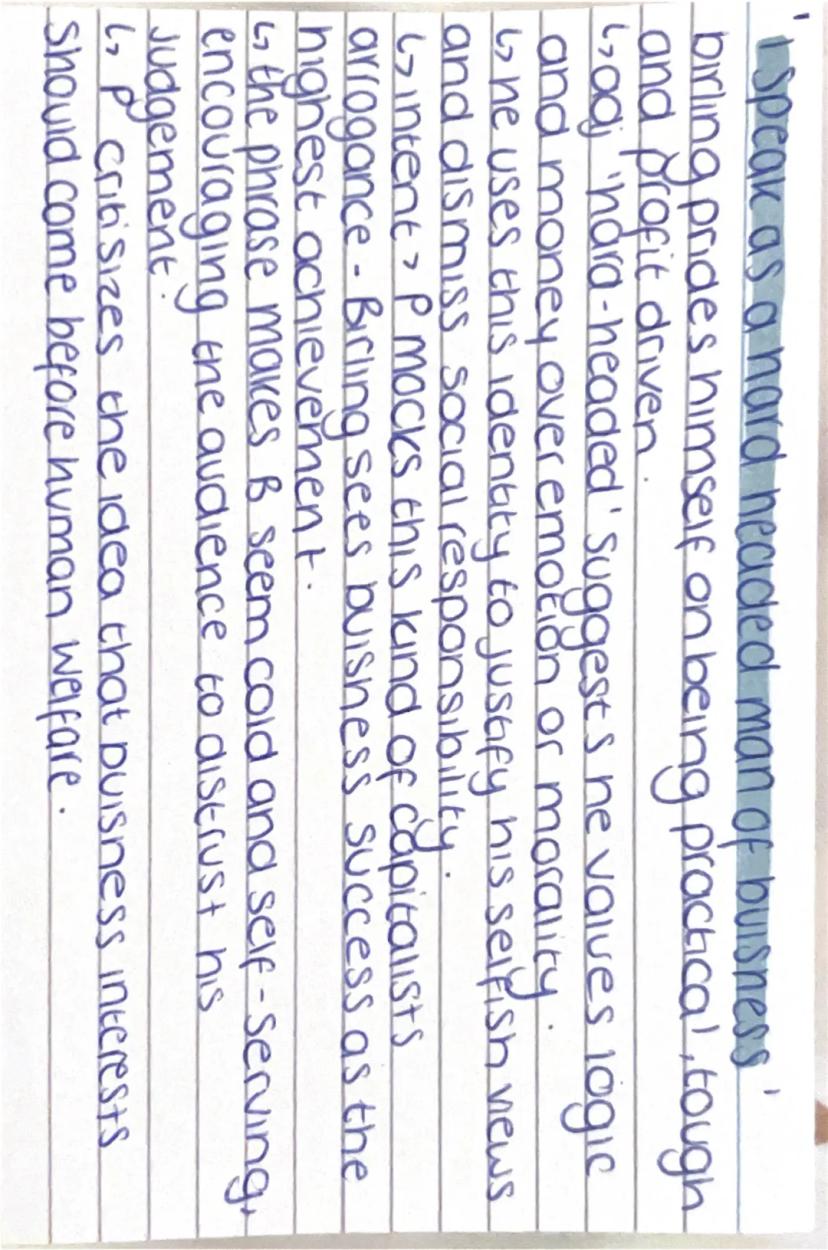 'I speak as a hard headed man of buisness'
birling prides himself on being practical, tough
and profit driven.
↳ adj 'hard-headed' suggests he values logic
and money over emotion or morality.
↳ he uses this identity to justify his selfish views
and dismiss social responsibility.
↳ intent > P mocks this kind of capitalists
arrogance - Birling sees buisness success as the
highest achievement.
↳ the phrase makes B seem cold and self-serving,
encouraging the audience to distrust his
judgement.
↳ P critisizes the idea that buisness interests
should come before human welfare.